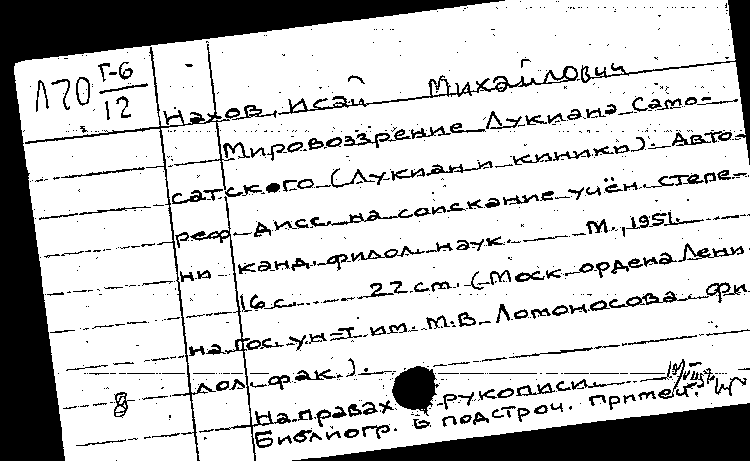 Л70 Г-6
12
Нахов, Исай Михайлович
Мировоззрение Лукиана Само-
сатского (Лукиан и киники). Авто-
реф. дисс. на соискание учён. степе-
ни канд. филол. наук. М., 1951.
16 с. 22 см. (Моск. ордена Лени-
на Гос. ун-т им. М.В. Ломоносова. Фи-
лол. фак.).
8
На правах рукописи.
Библиогр. в подстроч. примеч.